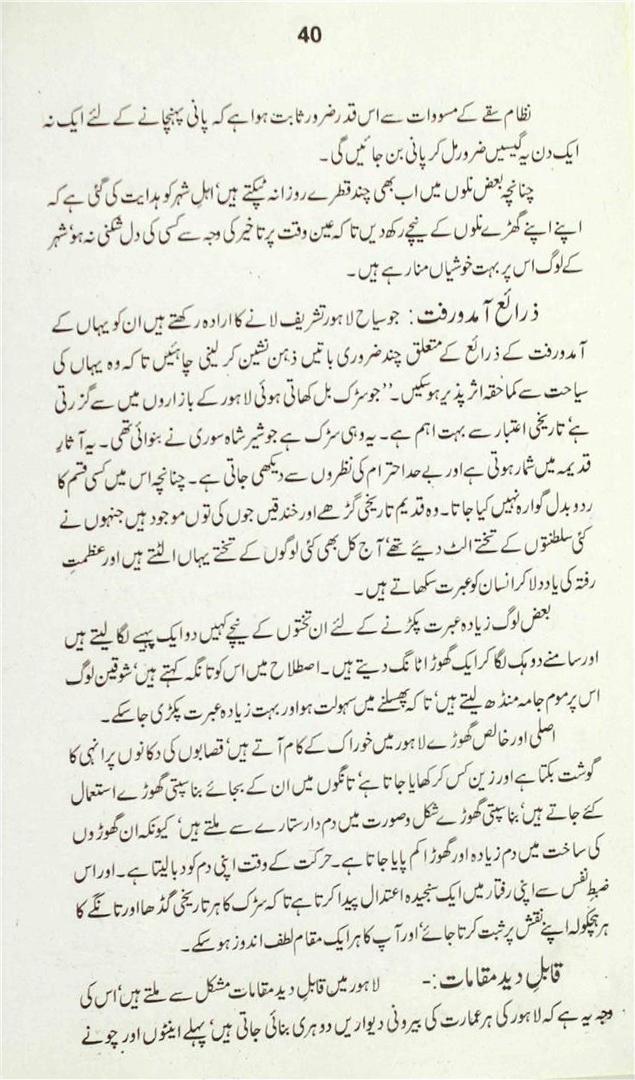 40
نظام سقے کے مسودات سے اس قدر ضرور ثابت ہوا ہے کہ پانی پہنچانے کے لئے ایک نہ
ایک دن یہ گیسیں ضرور مل کر پانی بن جائیں گی۔
چنانچہ بعض نلوں میں اب بھی چند قطرے روزانہ ٹپکتے ہیں‘ اہل شہر کو ہدایت کی گئی ہے کہ
اپنے اپنے گھڑے نلوں کے نیچے رکھ دیں تا کہ عین وقت پر تاخیر کی وجہ سے کسی کی دل شکنی نہ ہو‘ شہر
کے لوگ اس پر بہت خوشیاں منا رہے ہیں۔
ذرائع آمدورفت: جو سیاح لاہور تشریف لانے کا ارادہ رکھتے ہیں ان کو یہاں کے
آمدورفت کے ذرائع کے متعلق چند ضروری باتیں ذہن نشین کر لینی چاہئیں تا کہ وہ یہاں کی
سیاحت سے کماحقہ اثر پذیر ہوسکیں۔’’جو سڑک بل کھاتی ہوئی لاہور کے بازاروں میں سے گزرتی
ہے‘ تاریخی اعتبار سے بہت اہم ہے۔ یہ وہی سڑک ہے جو شیر شاہ سوری نے بنوائی تھی۔ یہ آثارِ
قدیمہ میں شمار ہوتی ہے اور بے حد احترام کی نظروں سے دیکھی جاتی ہے۔ چنانچہ اس میں کسی قسم کا
ردوبدل گوارہ نہیں کیا جاتا۔ وہ قدیم تاریخی گڑھے اور خندقیں جوں کی توں موجود ہیں جنہوں نے
کئی سلطنتوں کے تختے الٹ دیئے تھے‘ آج کل بھی کئی لوگوں کے تختے یہاں الٹتے ہیں اور عظمتِ
رفتہ کی یاد دلا کر انسان کو عبرت سکھاتے ہیں۔
بعض لوگ زیادہ عبرت پکڑنے کے لئے ان تختوں کے نیچے کہیں دو ایک پہیے لگا لیتے ہیں
اور سامنے دو ہک لگا کر ایک گھوڑا ٹانگ دیتے ہیں۔ اصطلاح میں اس کو تانگہ کہتے ہیں‘ شوقین لوگ
اس پر موم جامہ منڈھ لیتے ہیں‘ تا کہ پھسلنے میں سہولت ہو اور بہت زیادہ عبرت پکڑی جاسکے۔
اصلی اور خالص گھوڑے لاہور میں خوراک کے کام آتے ہیں‘ قصابوں کی دکانوں پر انہی کا
گوشت بکتا ہے اور زین کس کر کھایا جاتا ہے‘ تانگوں میں ان کے بجائے بناسپتی گھوڑے استعمال
کئے جاتے ہیں‘ بناسپتی گھوڑے شکل وصورت میں دم دار ستارے سے ملتے ہیں‘ کیونکہ ان گھوڑوں
کی ساخت میں دم زیادہ اور گھوڑا کم پایا جاتا ہے۔ حرکت کے وقت اپنی دم کو دبا لیتا ہے۔ اور اس
ضبطِ نفس سے اپنی رفتار میں ایک سنجیدہ اعتدال پیدا کرتا ہے تا کہ سڑک کا ہر تاریخی گڈھا اور تانگے کا
ہر ہچکولہ اپنے نقش پر ثبت کرتا جائے‘ اور آپ کا ہر ایک مقام لطف اندوز ہوسکے۔
قابلِ دید مقامات:- لاہور میں قابلِ دید مقامات مشکل سے ملتے ہیں‘ اس کی
وجہ یہ ہے کہ لاہور کی ہر عمارت کی بیرونی دیواریں دوہری بنائی جاتی ہیں‘ پہلے اینٹوں اور چونے